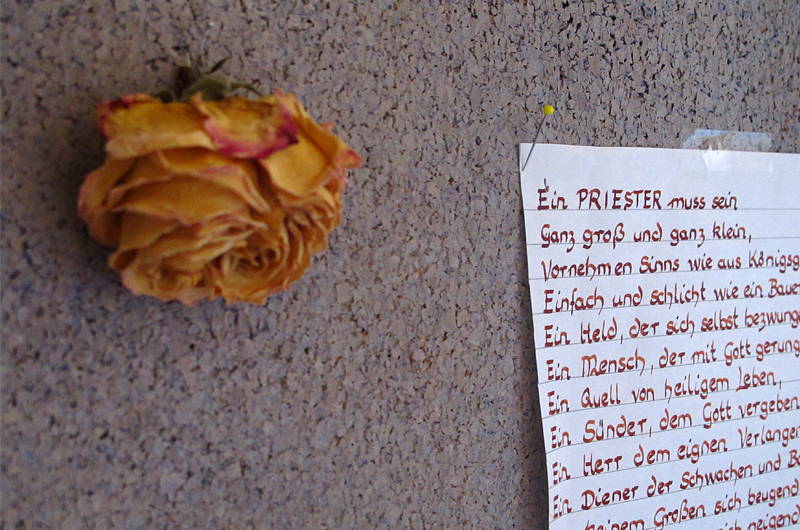 Ein PRIESTER muss sein
Ganz groß und ganz klein,
Vornehmen Sinns wie aus Königsg
Einfach und schlicht wie ein Bauer
Ein Held, der sich selbst bezwunge
Ein Mensch, der mit Gott gerung
Ein Quell von heiligem Leben,
Ein Sünder, dem Gott vergeben
Ein Herr dem eignen Verlangen
Ein Diener der Schwachen und B
keinem Großen sich beugend
neigend